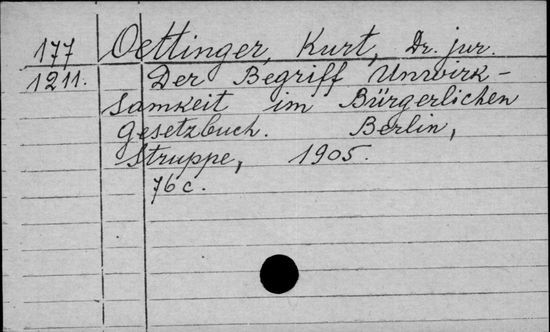 177 Oettinger, Kurt, Dr. jur.
1211. Der Begriff Unwirk-
samkeit im Bürgerlichen
Gesetzbuch. Berlin,
Struppe, 1905.
76 c.